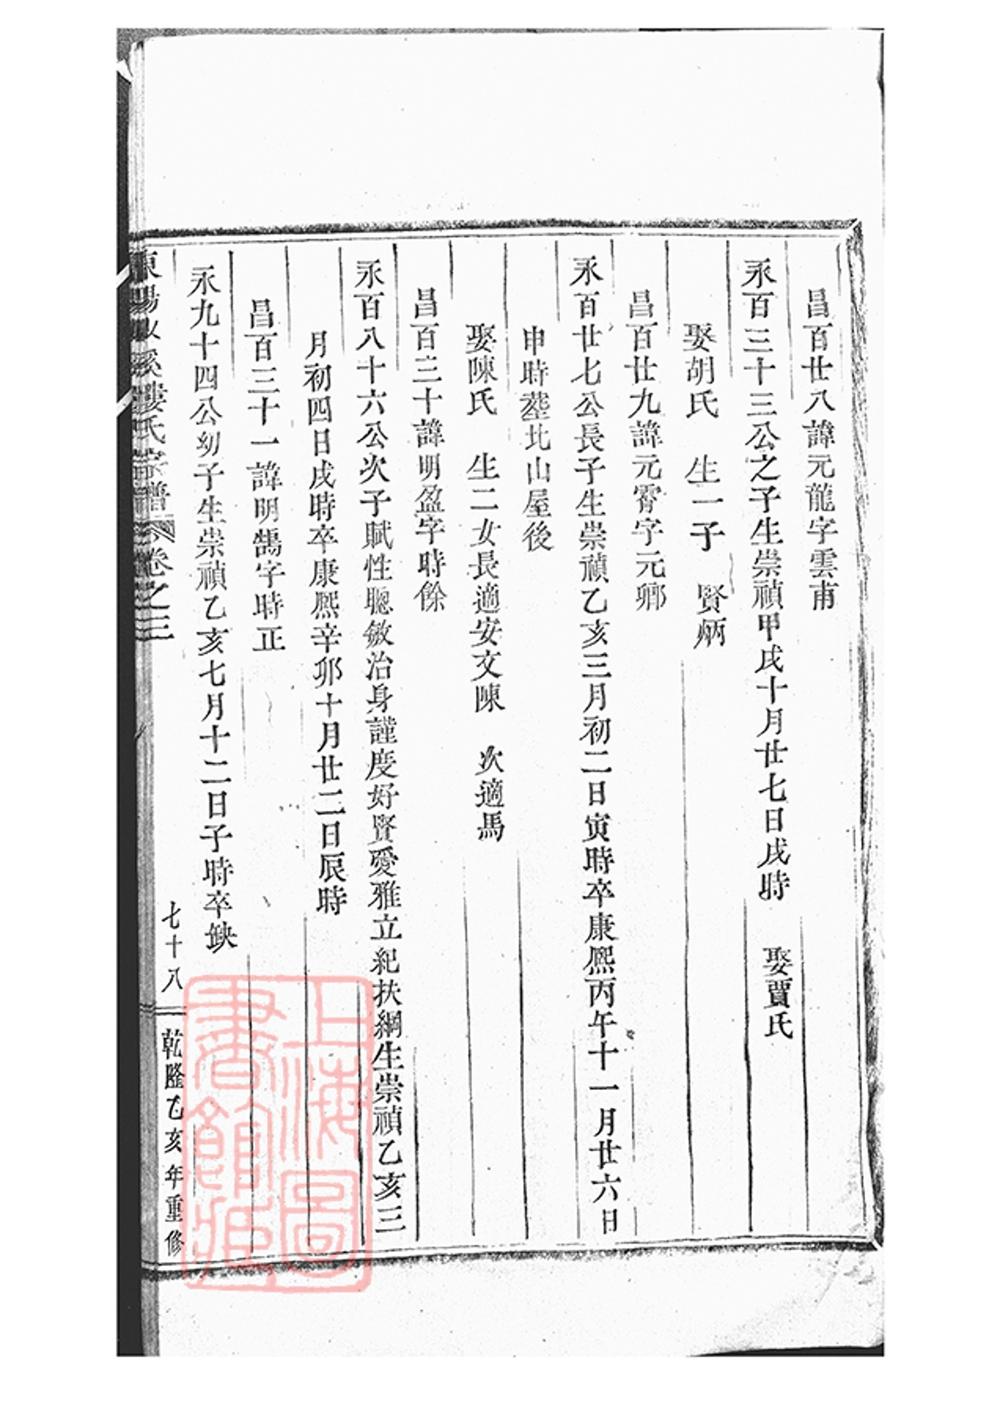 昌百廿八諱元龍字雲甫
永百三十三公之子生崇禎甲戌十月廿七日戌時 娶賈氏
娶胡氏 生一子 賢炳
昌百廿九諱元霄字元卿
永百廿七公長子生崇禎乙亥三月初二日寅時卒康熙丙午十一月廿六日
申時塟北山屋後
娶陳氏 生二女長適安文陳 次適馬
昌百三十諱明盈字時餘
永百八十六公次子賦性聰敏治身謹度好賢愛雅立紀扶綱生崇禎乙亥三
月初四日戌時卒康熙辛卯十月廿二日辰時
昌百三十一諱明鵠字時正
永九十四公幼子生崇禎乙亥七月十二日子時卒缺
東陽 溪婁氏宗譜 卷之三 七十八 乾隆乙亥年重修
上海圖書館藏